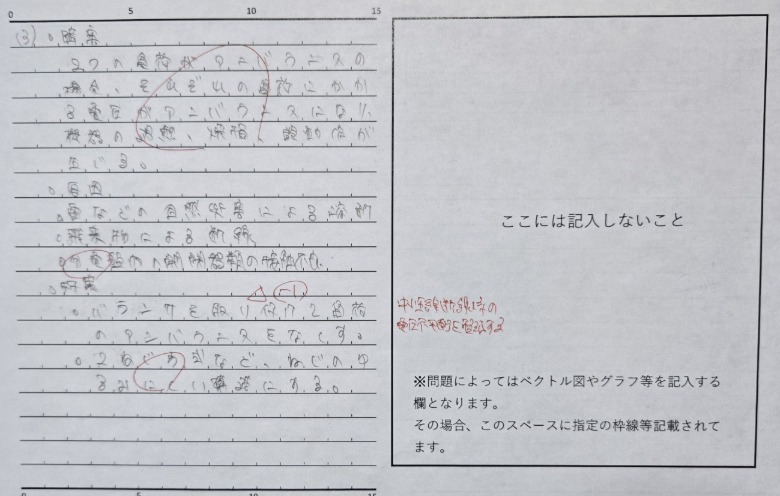 0 5 10 15
(3)。障害
2つの負荷がアンバランスの
場合、それぞれの負荷にかか
る電圧がアンバランスになり、
機器の過熱、焼損、誤動作が
生じる。
。原因
。雷などの自然災害による断
。飛来物による断線
。分電盤内の開閉器類の接触不
。対策
△ -1
。バランサを取り付けて負荷
のアンバランスをなくす。
。2ねじ式など、ねじのゆ
るみにくい構造にする。
0 5 10 15
ここには記入しないこと
中性線断線時の
電圧不平衡を
※問題によってはベクトル図やグラフ等を記入する
欄となります。
その場合、このスペースに指定の枠線等記載されて
ます。